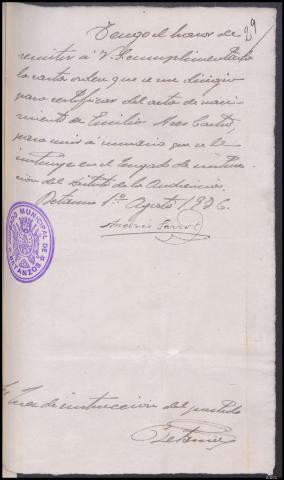 29
Tengo el honor de
remitir á V.S. cumplimentada
la carta orden que se me dirigio
para certificar del acta de naci-
miento de Emilio
para unir a sumario que se le
instruye en el Juzgado de instruc-
ción del Instituto de la Audiencia.
Betanzos 1º Agosto 1936.
Andrés
JUZGADO MUNICIPAL DE BETANZOS
Juez de instrucción del partido
Betanzos